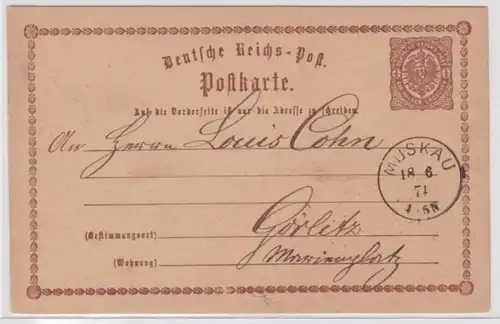 Deutsche Reichs-Post.
Postkarte.
Auf die Vorderseite ist nur die Adresse zu schreiben.
An Herrn Louis Cohn
MUSKAU
18 6
74
4-5N
Görlitz
(Bestimmungsort)
Marienplatz
(Wohnung)